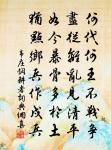 何代何王不戰爭
盡從離亂見清平
如今暴骨多於土
猶點鄉兵作戍兵
韋庄憫耕者詞典網